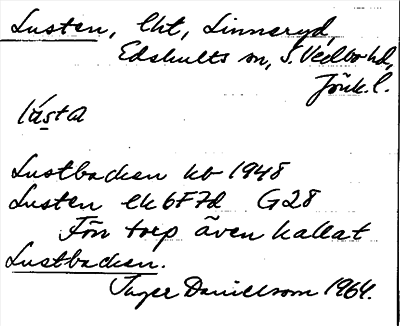 Lusten, lht, Linneryd,
Edshults sn, S. Vedbo hd,
Jönk. l.
lústa
Lustbacken kb 1948
Lusten ek 6F7d G28
Förr torp även kallat
Lustbacken.
Inger Danielsson 1964.